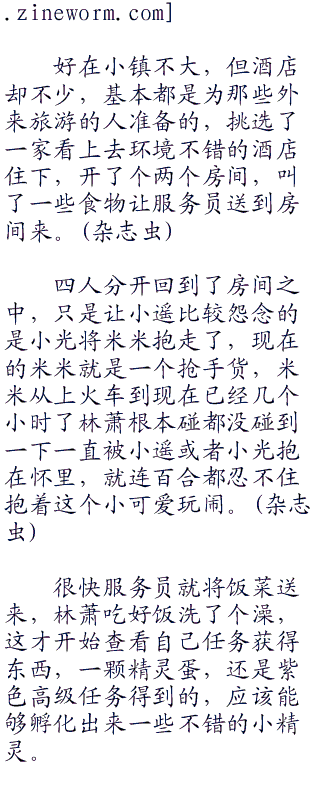 .zineworm.com]
好在小镇不大，但酒店
却不少，基本都是为那些外
来旅游的人准备的，挑选了
一家看上去环境不错的酒店
住下，开了个两个房间，叫
了一些食物让服务员送到房
间来。(杂志虫)
四人分开回到了房间之
中，只是让小遥比较怨念的
是小光将米米抱走了，现在
的米米就是一个抢手货，米
米从上火车到现在已经几个
小时了林萧根本碰都没碰到
一下一直被小遥或者小光抱
在怀里，就连百合都忍不住
抱着这个小可爱玩闹。(杂志
虫)
很快服务员就将饭菜送
来，林萧吃好饭洗了个澡，
这才开始查看自己任务获得
东西，一颗精灵蛋，还是紫
色高级任务得到的，应该能
够孵化出来一些不错的小精
灵。